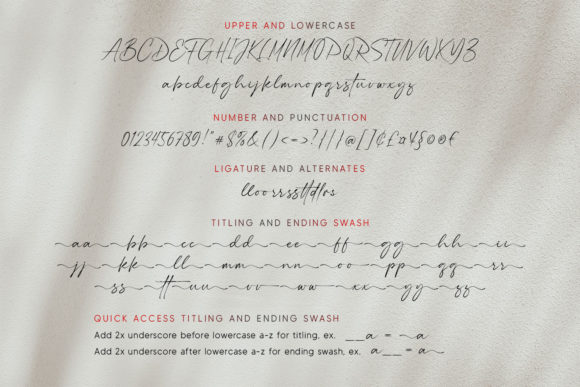 UPPER AND LOWERCASE
ABCDEFGHIJKLMNMOPQRSTUVWXYZ
abcdefghijklmnopqrstuvwxyz
NUMBER AND PUNCTUATION
0123456789!"#$%&()<=>?/||@[]¢£¤¥§©®€
LIGATURE AND ALTERNATES
TITLING AND ENDING SWASH
aa bb cc dd ee ff gg hh ii
jj kk ll mm nn oo pp qq rr
ss tt uu vv ww xx yy zz
QUICK ACCESS TITLING AND ENDING SWASH
Add 2x underscore before lowercase a-z for titling, ex. __a = a
Add 2x underscore after lowercase a-z for ending swash, ex. a__ = a